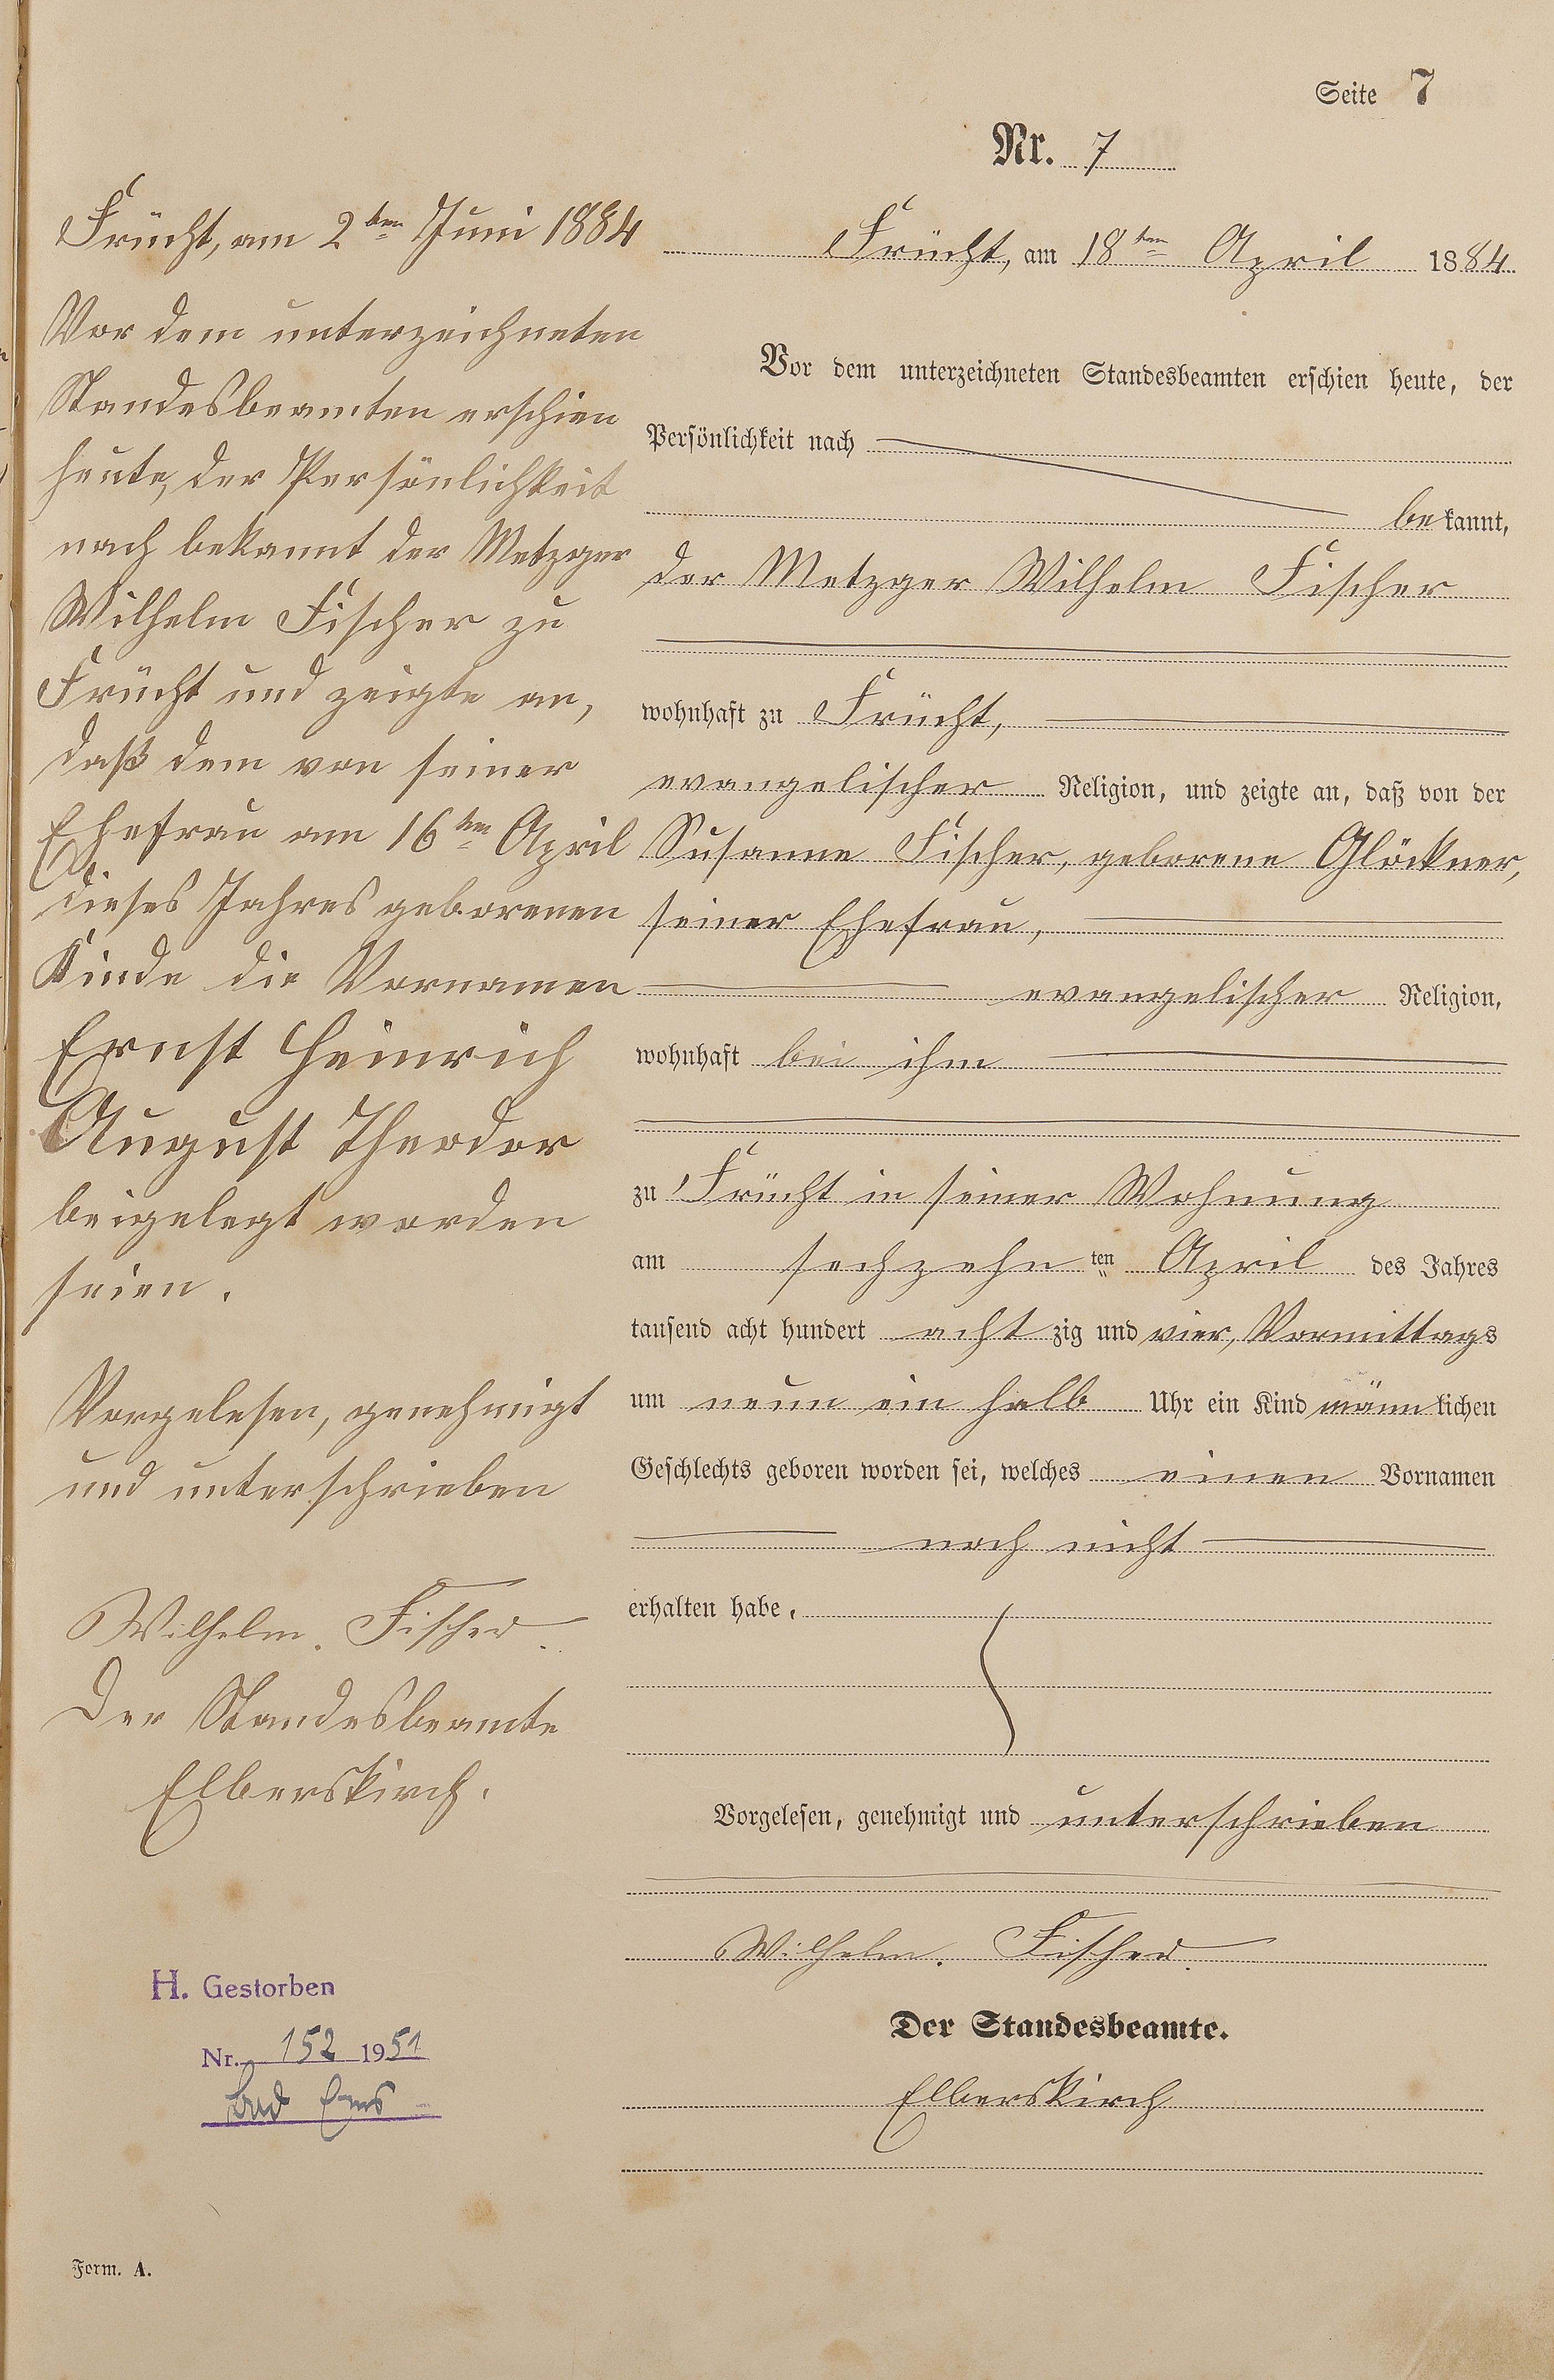 Seite 7
Nr. 7
Frücht, am 18ten April 1884
Vor dem unterzeichneten Standesbeamten erschien heute, der
Persönlichkeit nach
bekannt,
der Metzger Wilhelm Fischer
wohnhaft zu Frücht,
evangelischer Religion, und zeigte an, daß von der
Susanne Fischer, geborene Glöckner,
seiner Ehefrau,
evangelischer Religion,
wohnhaft bei ihm
zu Frücht in seiner Wohnung
am sechzehn ten April des Jahres
tausend acht hundert acht zig und vier, Vormittags
um neun ein halb Uhr ein Kind männlichen
Geschlechts geboren worden sei, welches einen Vornamen
noch nicht
erhalten habe.
Vorgelesen, genehmigt und unterschrieben
Wilhelm. Fischer.
Der Standesbeamte.
Elberskirch
Frücht, am 2ten Juni 1884
Vor dem unterzeichneten
Standesbeamten erschien
heute, der Persönlichkeit
nach bekannt der Metzger
Wilhelm Fischer zu
Frücht und zeigte an,
daß dem von seiner
Ehefrau am 16ten April
dieses Jahres geborenen
Kinde die Vornamen
Ernst Heinrich
August Theodor
beigelegt worden
seien.
Vorgelesen, genehmigt
und unterschrieben
Wilhelm. Fischer.
Der Standesbeamte
Elberskirch.
H. Gestorben
Nr. 152 1951
Bad Ems
Form. A.